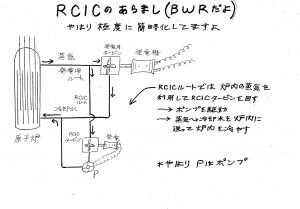 RCICのあらまし(BWRだよ)
やはり極度に簡略化してますよ
蒸気
発電用
タービン
発電機
発電用
ルート
RCIC
ルート
冷却水
原子炉
RCIC
タービン
発電
P
RCICルートでは炉内の蒸気を
利用してRCICタービンを回す
→ポンプを駆動
→蒸気→冷却水を炉内に
送って炉内を冷やす
*やはりPはポンプ